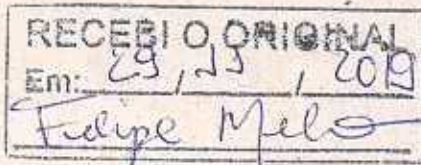 RECEBI O ORIGINAL
Em: 29 / 11 / 2019
Felipe Melo